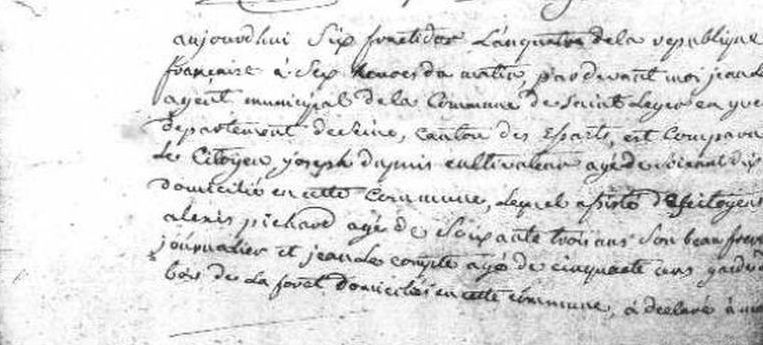 aujourdhui Six fructidor L'an quatre de la republique
francaise à Sex heures du matin, pardevant moi jean L
agent municipal de la Commune de Saint Leger en yve
departement de Seine, Canton des Esarts, est Compara
Le Citoyen joseph dupuis cultivateur agé de soixant dix
domicilié en cette Commune, Lequel assisté des citoyens
alexis pichard agé de Soixante trois ans Son beau frere
journalier et jean Le compte agé de cinquante ans garde d
bois de La foret domiciliés en cette commune, à declaré à m